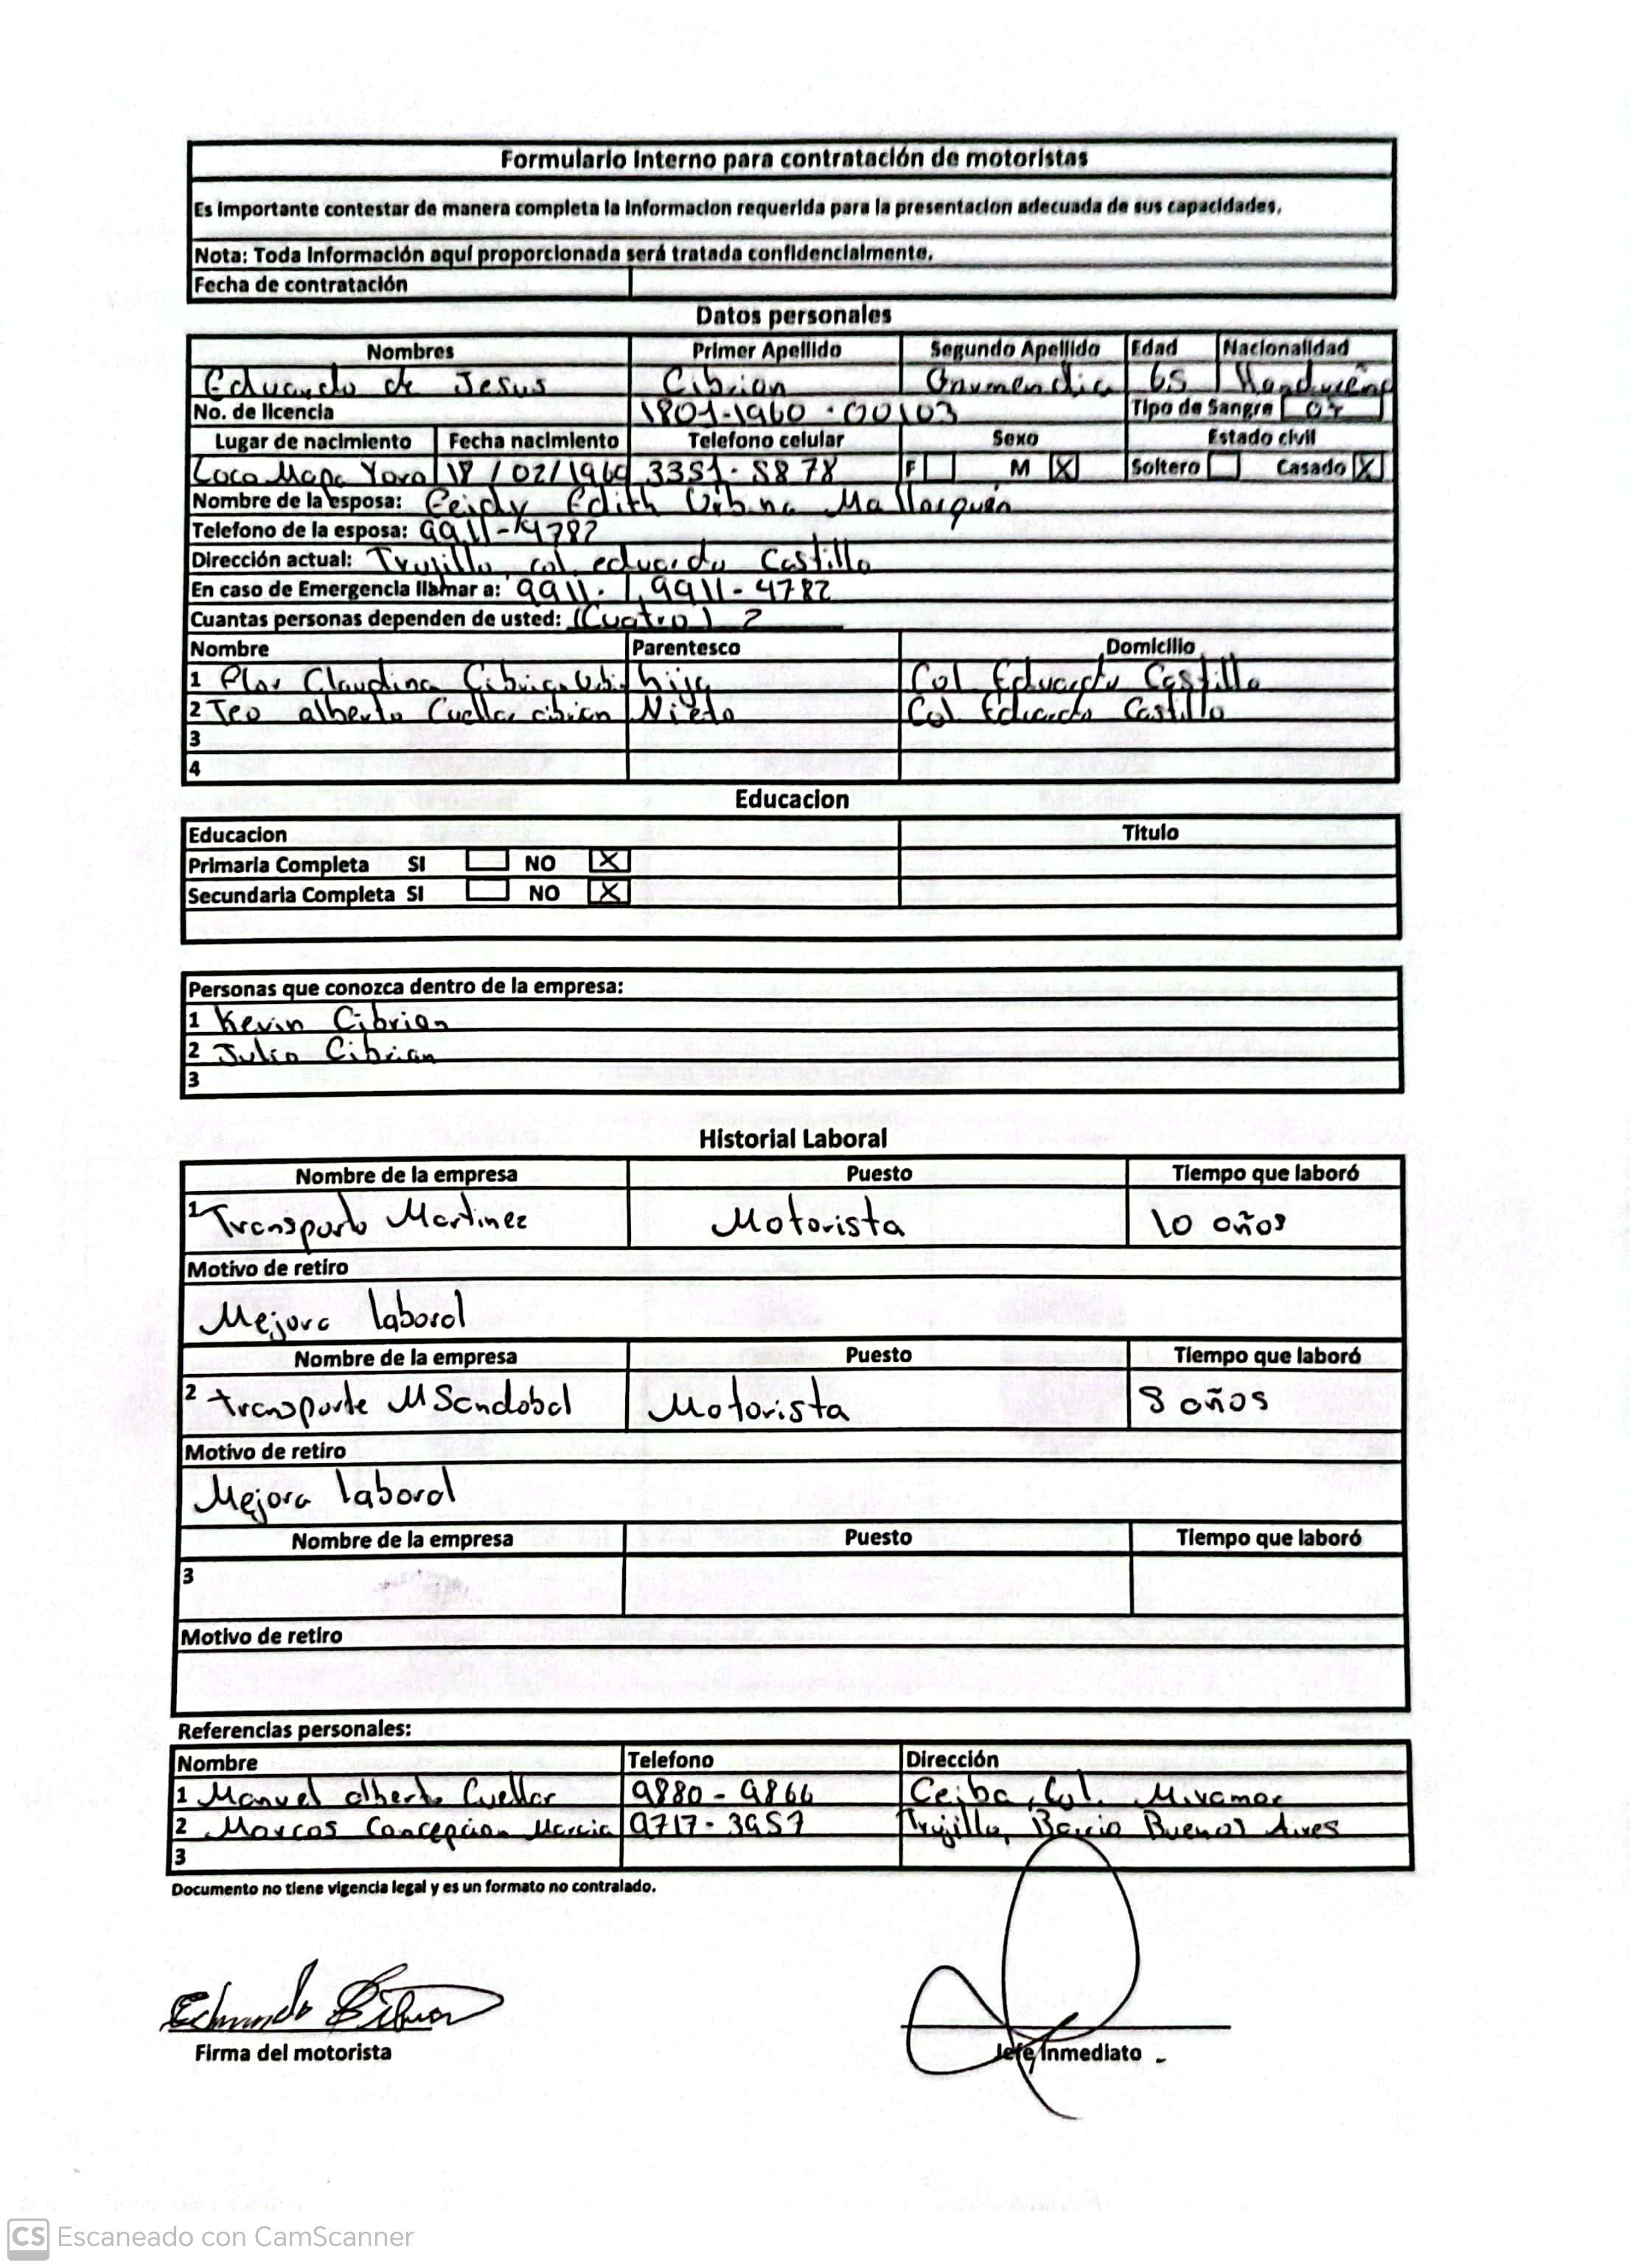 Formulario Interno para contratación de motoristas
Es Importante contestar de manera completa la Informacion requerida para la presentacion adecuada de sus capacidades,
Nota: Toda Información aquí proporcionada será tratada confidencialmente.
Fecha de contratación
Datos personales
Nombres Primer Apellido Segundo Apellido Edad Nacionalidad
Eduardo de Jesus Cibrian 65
No. de licencia 1801-1960-00103 Tipo de Sangre
Lugar de nacimiento Fecha nacimiento Telefono celular Sexo Estado civil
Coco Mapa Yoro 18/02/1960 3351-5878 F M X Soltero Casado X
Nombre de la esposa: Edith Urbina
Telefono de la esposa: 9911-4782
Dirección actual: Trujillo col. eduardo Castillo
En caso de Emergencia llamar a: 9911- 9911-4782
Cuantas personas dependen de usted: (Cuatro) 2
Nombre Parentesco Domicilio
1 Claudina hija Col Eduardo Castillo
2 Teo alberto Cuellar cibrian Nieto Col Eduardo Castillo
3
4
Educacion
Educacion Titulo
Primaria Completa SI NO X
Secundaria Completa SI NO X
Personas que conozca dentro de la empresa:
1 Kevin Cibrian
2 Julio Cibrian
3
Historial Laboral
Nombre de la empresa Puesto Tiempo que laboró
1 Transporte Martinez Motorista 10 años
Motivo de retiro
Mejora laboral
Nombre de la empresa Puesto Tiempo que laboró
2 transporte M Sandobal Motorista 8 años
Motivo de retiro
Mejora laboral
Nombre de la empresa Puesto Tiempo que laboró
3
Motivo de retiro
Referencias personales:
Nombre Telefono Dirección
1 Manuel alberto Cuellar 9880-9866 Ceiba, Col. Miramar
2 Marcos Concepcion 9717-3957 Trujillo, Barrio Buenos Aires
3
Documento no tiene vigencia legal y es un formato no contralado.
Firma del motorista Jefe Inmediato
CS Escaneado con CamScanner